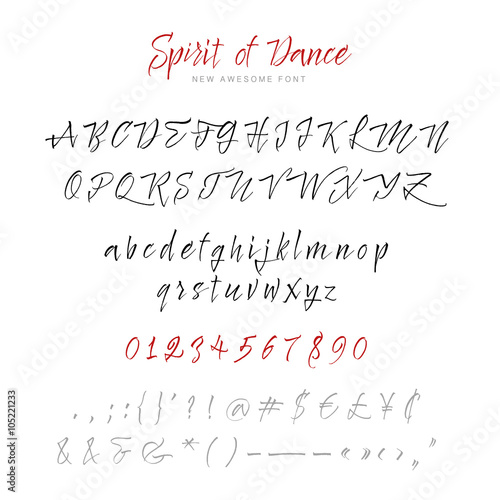 Spirit of Dance
NEW AWESOME FONT
ABCDEFGHIJKLMN
OPQRSTUVWXYZ
abcdefghijklmnop
qrstuvwxyz
01234567890
.,;:{}'?!@#$€£¥₵
&&&&*()-—–«»‹›„"
Adobe Stock | #105221233